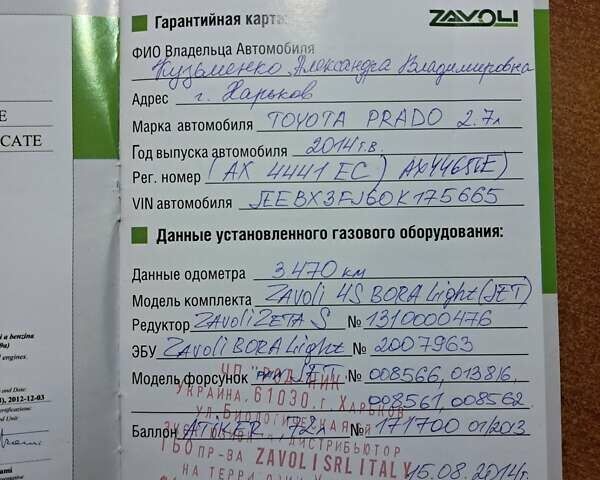 E
CATE
i a benzina
9a)
engines.
and Date:
), 2012-12-03
ertifications:
d Unit
Гарантийная карта: ZAVOLI
ФИО Владельца Автомобиля
Кузьменко Александра Владимировна
Адрес г. Харьков
Марка автомобиля TOYOTA PRADO 2.7л
Год выпуска автомобиля 2014 г.в.
Рег. номер (AX 4441 EC)
VIN автомобиля JTEBX3FJ60K175665
Данные установленного газового оборудования:
Данные одометра 3470 км
Модель комплекта ZAVOLI 4S BORA Light (JET)
Редуктор ZAVOLI ZETA S № 1310000476
ЭБУ ZAVOLI BORA Light № 2007963
Модель форсунок JET № 008566, 013816,
008561, 008562
Баллон ATIKER 72л № 171700 01/2013
УКРАИНА, 61030, г. ХАРЬКОВ
ул. Биологическая
ДИСТРИБЬЮТОР
ГБО пр-ва ZAVOLI SRL ITALY
15.08.2014г.